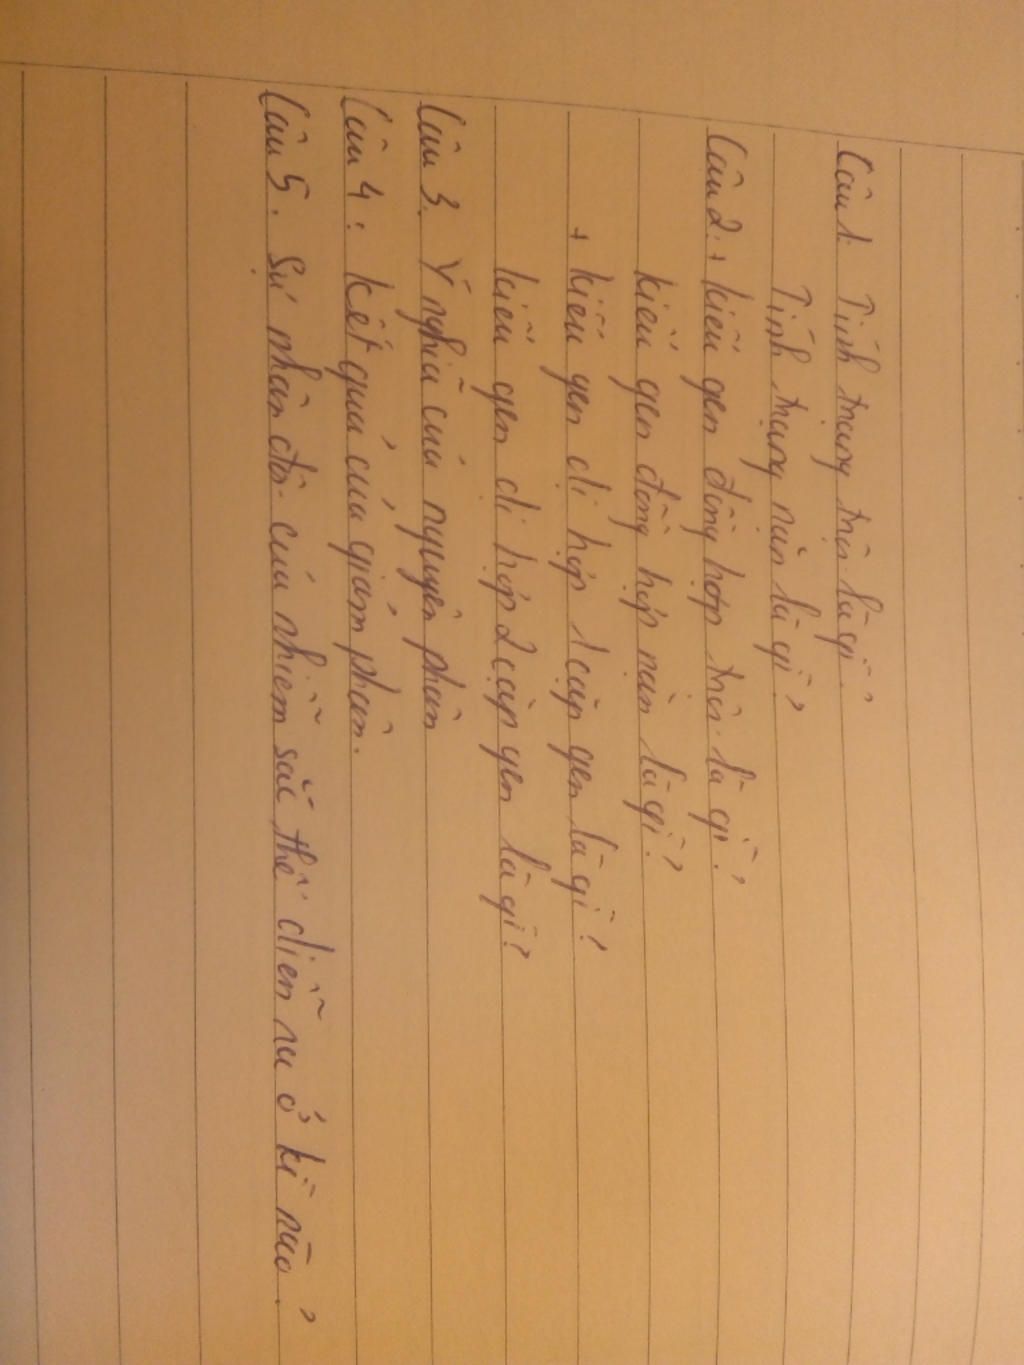 Câu 1: Tính trạng trội là gì?
Tính trạng lặn là gì?
Câu 2: + kiểu gen đồng hợp trội là gì?
kiểu gen đồng hợp lặn là gì?
+ kiểu gen dị hợp 1 cặp gen là gì?
kiểu gen dị hợp 2 cặp gen là gì?
Câu 3. Ý nghĩa của nguyên phân
Câu 4: kết quả của giảm phân.
Câu 5. Sự nhân đôi của nhiễm sắc thể diễn ra ở kì nào?